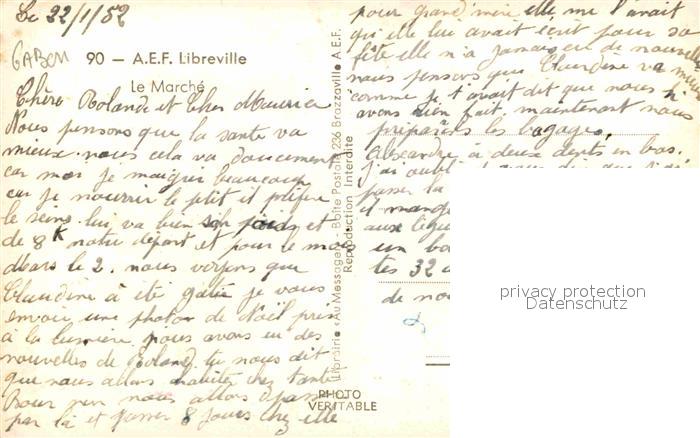 Le 22/1/52
GABON
90 — A.E.F. Libreville
Le Marché
Chère Rolande et Cher Maurice
Nous pensons que la sante va
mieux. nous cela va doucement
car moi je maigri beaucoup
car je nourrir le petit il préfère
le seins. lui va bien son poids et
de 8K notre départ et pour le mois
Mars le 2. nous voyons que
Claudine à été gatée je vous
envoie une photos de Noël pris
à la lumière nous avons eu des
nouvelles de Roland. tu nous dit
que nous allons habiter chez tante
nous allons
par là et passer 8 jours chez elle
pour grand'mère elle me l'avait
qu'elle lui avait écrit pour sa
fête elle n'a jamais eu de nouvelle
nous pensons que Claudine va mieux
comme je t'avait dit que nous
avons bien fait, maintenant nous
préparons les bagages,
Alexandre à deux dents en bas.
J'ai oubl
passer la
il mange
aux légu
un bo
tes 32
de no
Librairie «Au Messager» - Boîte Postale 236 Brazzaville A.E.F.
Reproduction Interdite
PHOTO
VERITABLE
privacy protection
Datenschutz